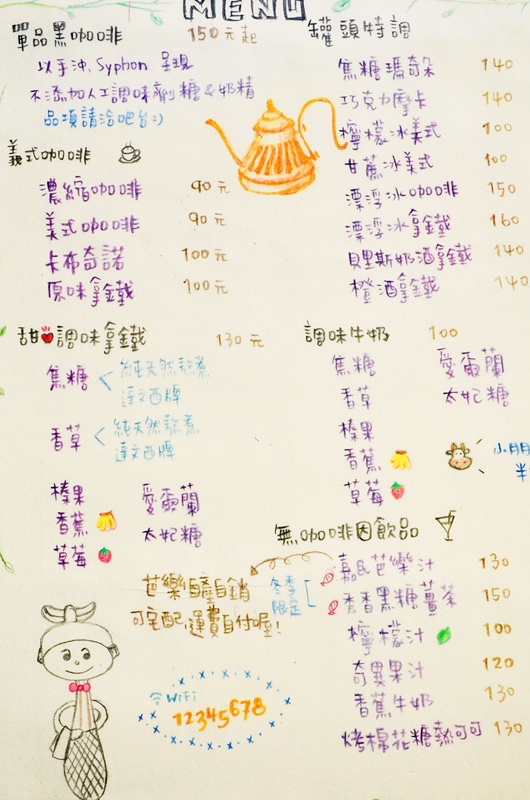 MENU
單品黑咖啡 150元起
以手沖、Syphon 呈現
不添加人工調味劑糖&奶精
品項請洽吧台:)
義式咖啡
濃縮咖啡 90元
美式咖啡 90元
卡布奇諾 100元
原味拿鐵 100元
甜 調味拿鐵 130元
焦糖 純天然熬煮
達文西牌
香草 純天然熬煮
達文西牌
榛果 愛爾蘭
香蕉 太妃糖
草莓
芭樂自產自銷
可宅配,運費自付喔!
WiFi
12345678
罐頭特調
焦糖瑪奇朵 140
巧克力摩卡 140
檸檬冰美式 100
甘蔗冰美式 100
漂浮冰咖啡 150
漂浮冰拿鐵 160
貝里斯奶酒拿鐵 140
橙酒拿鐵 140
調味牛奶 100
焦糖 愛爾蘭
香草 太妃糖
榛果
香蕉
草莓
小朋
半
無咖啡因飲品
冬季
限定
嘉民芭樂汁 130
香香黑糖薑茶 150
檸檬汁 100
奇異果汁 120
香蕉牛奶 130
烤棉花糖熱可可 130